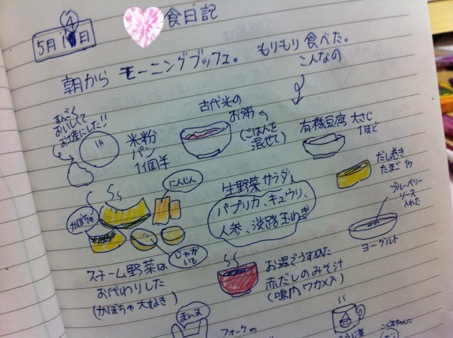 5月14日
食日記
朝から モーニングブッフェ。
もりもり 食べた。
こんなの
米粉
パン
1個半
古代米の
お粥
(ごはんを
混ぜて)
有機豆腐 大さじ
1ほど
だし巻き
たまご
ブルーベリー
ソース
入れた
ヨーグルト
にんじん
かぼちゃ
じゃが
いも
生野菜サラダ
パプリカ、キュウリ、
人参、淡路玉ねぎ
スチーム野菜は
おかわりした
(かぼちゃ大好き)
赤だしのみそ汁
(鳴門ワカメ入)
フォークの